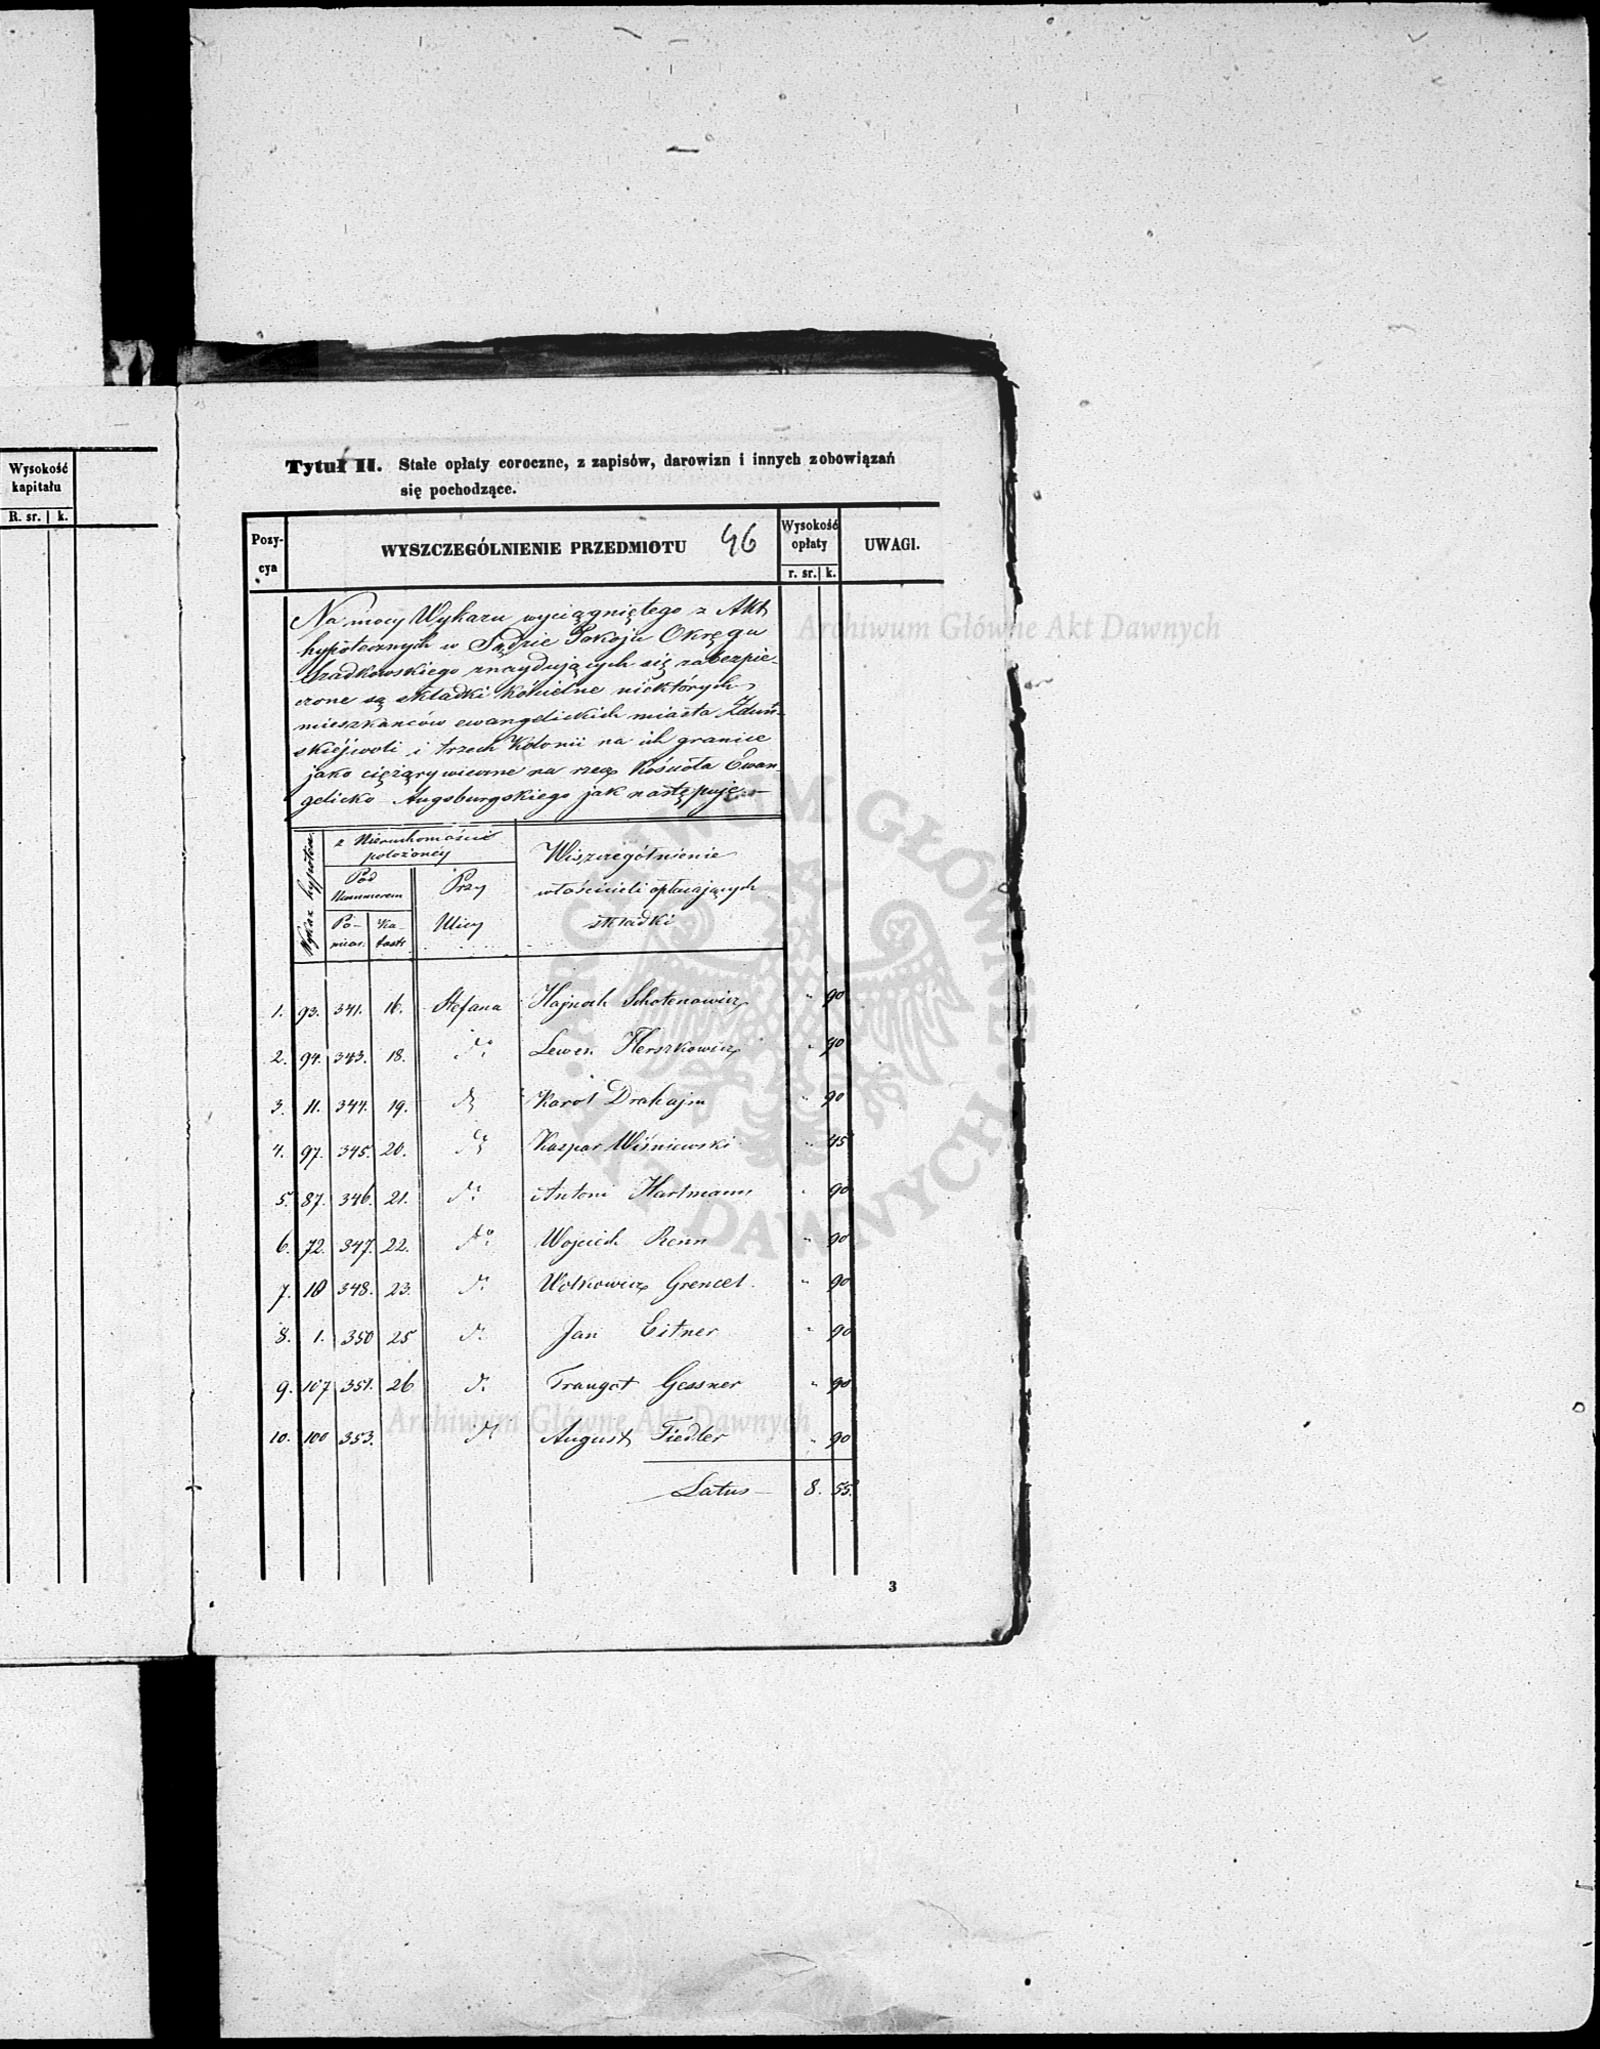 Wysokość
kapitału
R. sr. k.
Tytuł II. Stałe opłaty coroczne, z zapisów, darowizn i innych zobowiązań
się pochodzące.
Pozy-
cya
WYSZCZEGÓLNIENIE PRZEDMIOTU 46
Wysokość
opłaty
r. sr. k.
UWAGI.
Na mocy Wykazu wyciągniętego z Akt
hypotecznych w Sądzie Pokoju Okręgu
Szadkowskiego znaydujących się zabezpie-
czone są składki kościelne niektórych
mieszkańców ewangelickich miasta Zduń-
skiéjwoli i trzech Kolonii na ich granice
jako ciężary wieczne na rzecz Kościoła Ewan-
gelicko Augsburgskiego jak następuję
Wykaz hypotecz.
z Nieruchomości
położonéy
Pod
Nummerem
Po-
miar.
Ka-
tastr
Przy
Ulicy
Wiszczególnienie
właścicieli opłacających
składki
1. 93. 341. 16. Stefana Hajnoch Schotenowicz " 90
2. 94. 343. 18. do Lewek Herszkowicz " 90
3. 11. 344. 19. do Karol Drahajm " 90
4. 97. 345. 20. do Kaspar Wiśniewski " 45
5. 87. 346. 21. do Antoni Hartmann " 90
6. 72. 347. 22. do Wojciech Renn " 90
7. 10 348. 23. do Wolkowicz Grencel " 90
8. 1. 350 25 do Jan Eitner " 90
9. 107 351. 26 do Traugot Gessner " 90
10. 100 353. do August Fiedler " 90
Latus 8. 55.
3
Archiwum Główne Akt Dawnych
ARCHIWUM GŁÓWNE AKT DAWNYCH
Archiwum Główne Akt Dawnych